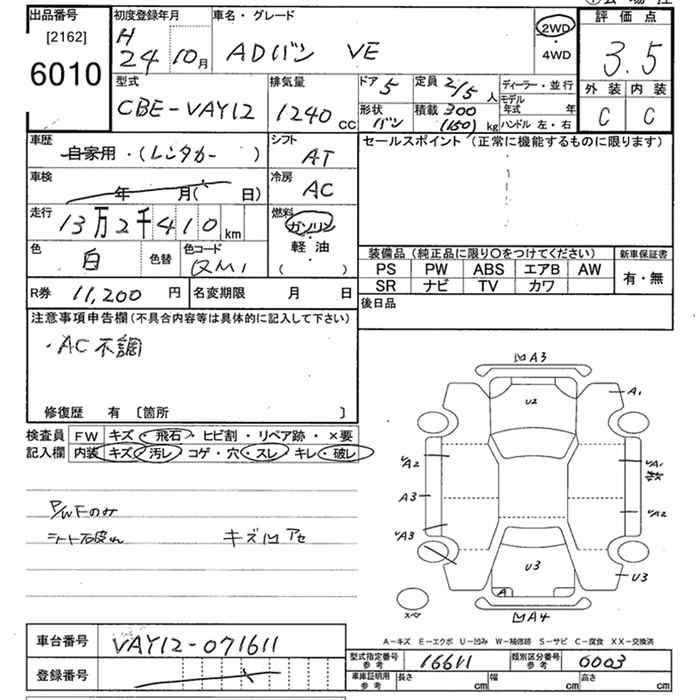 出品番号 初度登録年月 車名・グレード 評価点
[2162] H 2WD
6010 24 10月 ADバン VE ・ 3.5
4WD
型式 排気量 ドア 5 定員 2/5人 ディーラー・並行 外装 内装
CBE-VAY12 1240cc 形状 バン 積載 300 (150) kg モデル年式 年 C C
ハンドル 左・右
車歴 シフト セールスポイント(正常に機能するものに限ります)
自家用・(レンタカー ) AT
車検 年 月( 日) 冷房 AC
走行 13万2千410km 燃料
ガソリン
色 白 色替 色コード QM1 軽・油
( )
装備品(純正品に限り〇をつけてください) 新車保証書
PS PW ABS エアB AW 有・無
SR ナビ TV カワ
R券 11,200円 名変期限 月 日 後日品
注意事項申告欄(不具合内容等は具体的に記入して下さい)
・AC不調
修復歴 有 〔箇所 〕
検査員 FW キズ・飛石・ヒビ割・リペア跡・×要
記入欄 内装 キズ・汚レ・コゲ・穴・スレ・キレ・破レ
P/WFのみ
シート破れ キズ凹アセ
凹A3
A1
U2
A2
A1
A3
A2
A3
U3
U3
A
スペア
凹A4
A-キズ E-エクボ U-凹み W-補修跡 S-サビ C-腐食 XX-交換済
車台番号 VAY12-071611 型式指定番号 参考 16611 類別区分番号 参考 0003
登録番号 車庫証明用 参考 長さ cm 幅 cm 高さ cm